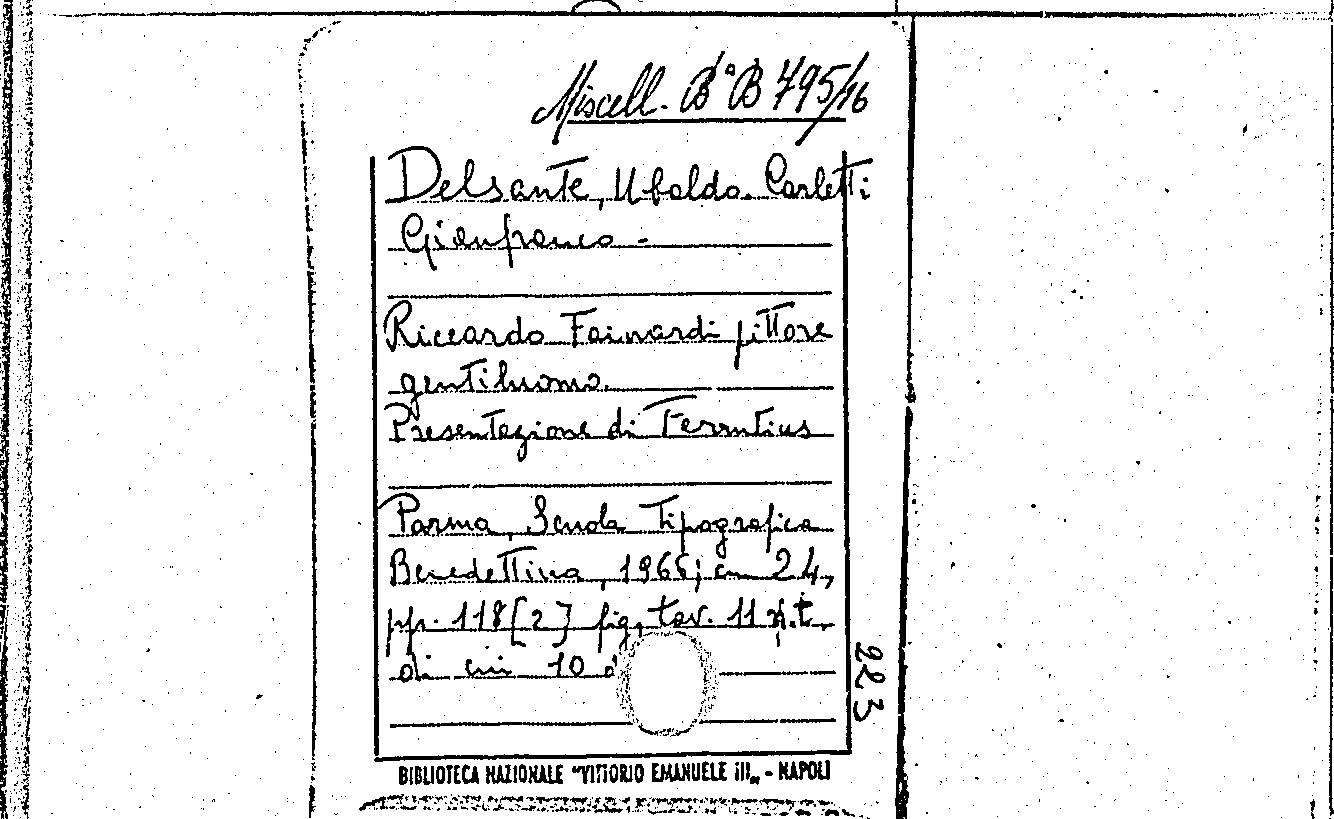 Miscell. B^a B 795/16
Delsante, Ubaldo. Carletti
Gianfranco -
Riccardo Fainardi pittore
gentiluomo.
Presentazione di Ferrutius
Parma, Scuola Tipografica
Benedettina, 1966; cm 24,
pp. 118 [2] fig, tav. 11 n.t.
di cui 10
223
BIBLIOTECA NAZIONALE "VITTORIO EMANUELE III„ - NAPOLI